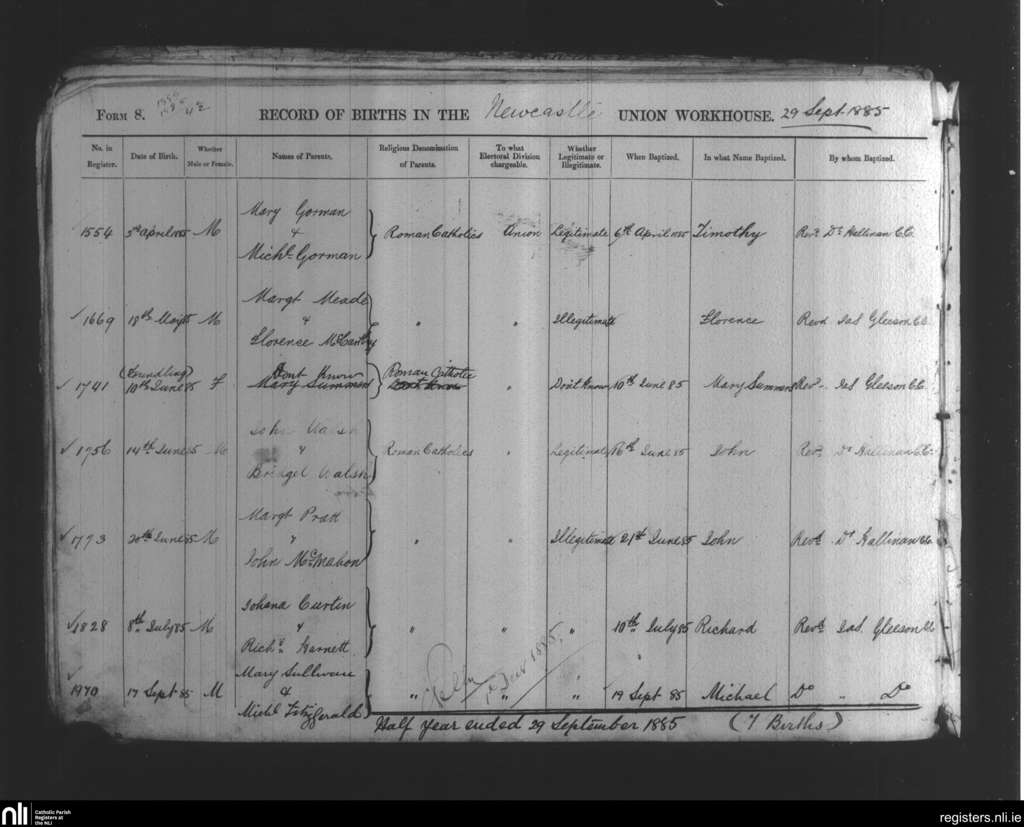 FORM 8.
RECORD OF BIRTHS IN THE Newcastle UNION WORKHOUSE. 29 Sept. 1885
No. in Register. Date of Birth. Whether Male or Female. Names of Parents. Religious Denomination of Parents. To what Electoral Division chargeable. Whether Legitimate or Illegitimate. When Baptized. In what Name Baptized. By whom Baptized.
Mary Gorman
1554 5th April 1885 M & Roman Catholics Union Legitimate 6th April 1885 Timothy Revd. Dr. Hallinan C.C.
Michl. Gorman
Margt Meade
✓1669 18th May 85 M & " " Illegitimate Florence Revd Jas Gleeson C.C.
Florence McCarthy
(Foundling) Dont Know Roman Catholic
✓1741 10th June 85 F Mary Summers Dont Know " Don't Know 10th June 85 Mary Summers Revd. Jas Gleeson C.C.
John Walsh
✓1756 14th June 85 M " Roman Catholics " Legitimate 16th June 85 John Revd. Dr Hallinan C.C.
Bridget Walsh
Margt Pratt
✓1793 20th June 85 M " " " Illegitimate 21st June 85 John Revd. Dr Hallinan C.C.
John McMahon
Johana Curtin
✓1828 8th July 85 M " " " " 10th July 85 Richard Revd. Jas. Gleeson C.C.
Richd. Garnett
Mary Sullivan
✓1970 17 Sept 85 M & " " " 19 Sept 85 Michael Do " Do
Michl Fitzgerald
1 Dec 1885.
Half year ended 29 September 1885 (7 Births)
nli Catholic Parish
Registers at
the NLI
registers.nli.ie